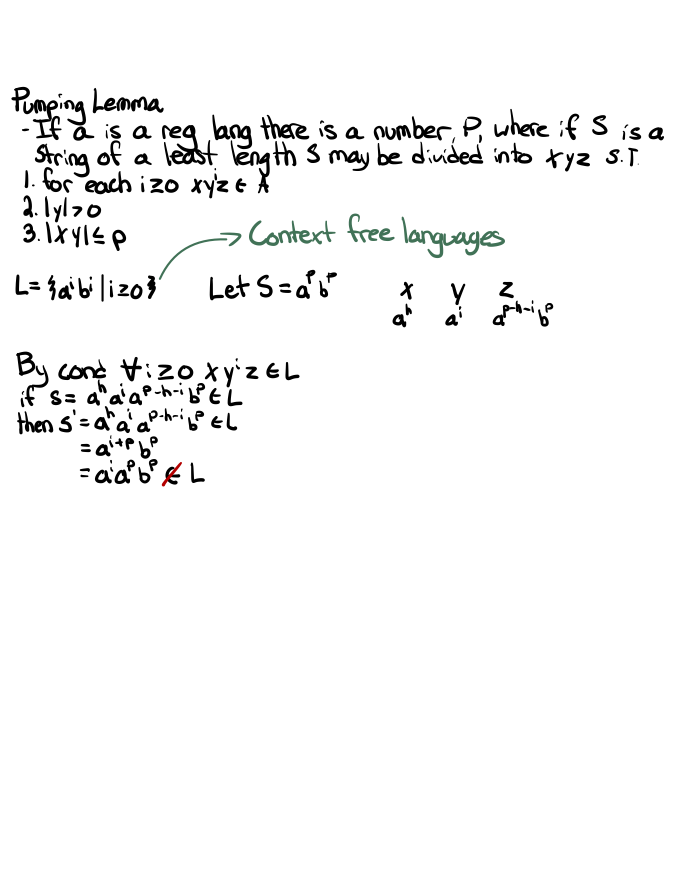 Pumping Lemma
- If a is a reg lang there is a number, P, where if S is a
string of a least length S may be divided into xyz S.T.
1. for each i≥0 xyⁱz ∈ A
2. |y|>0
3. |xy|≤p
→ Context free languages
L= {aⁱbⁱ | i≥0} Let S = aᵖbᵖ x y z
aʰ aⁱ aᵖ⁻ʰ⁻ⁱbᵖ
By cond ∀i≥0 xyⁱz ∈ L
if s = aʰaⁱaᵖ⁻ʰ⁻ⁱbᵖ ∈ L
then s' = aʰaⁱaᵖ⁻ʰ⁻ⁱbᵖ ∈ L
= aⁱ⁺ᵖbᵖ
= aⁱaᵖbᵖ ∉ L